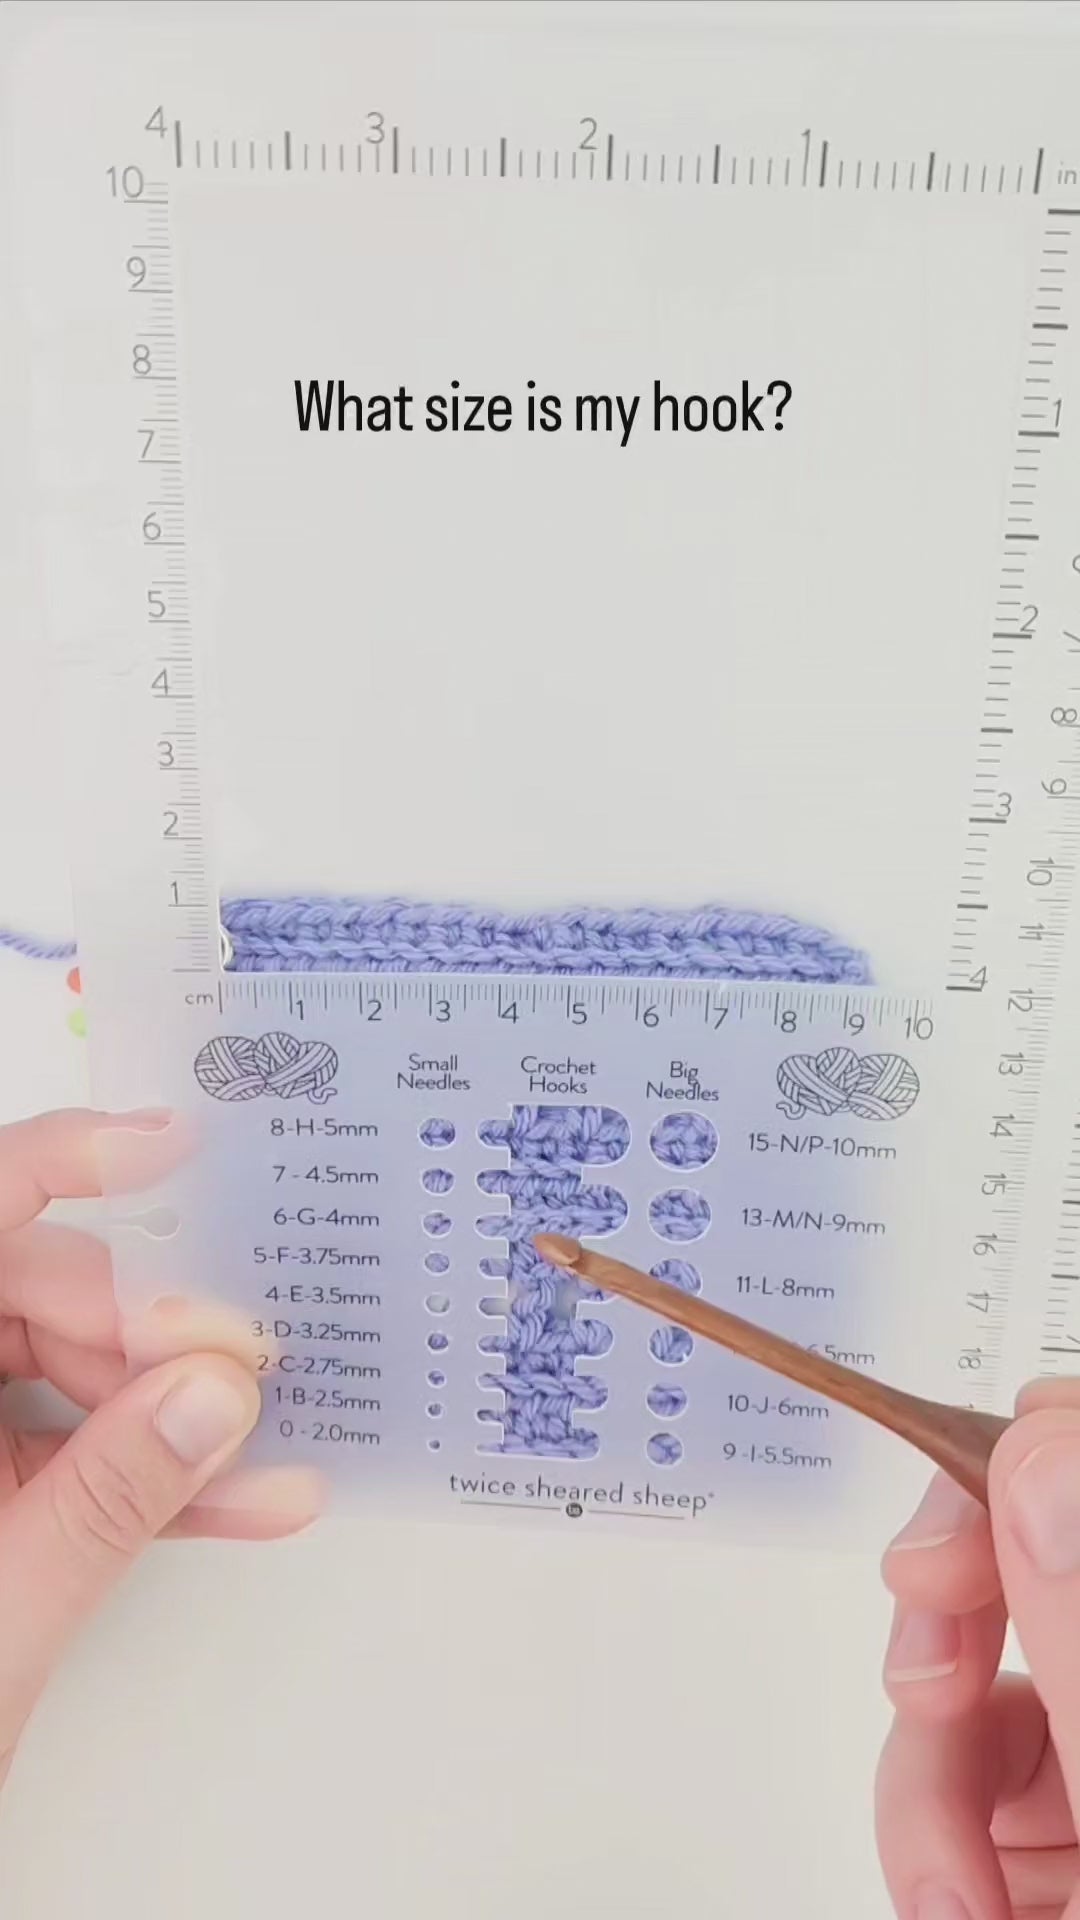 4 3 2 1 in
10
9
8
7
6
5
4
3
2
1
1
2
3
4
8
9
10
11
12
13
14
15
16
17
18
What size is my hook?
cm 1 2 3 4 5 6 7 8 9 10
Small
Needles
Crochet
Hooks
Big
Needles
8-H-5mm
7 - 4.5mm
6-G-4mm
5-F-3.75mm
4-E-3.5mm
3-D-3.25mm
2-C-2.75mm
1-B-2.5mm
0 - 2.0mm
15-N/P-10mm
13-M/N-9mm
11-L-8mm
5mm
10-J-6mm
9-I-5.5mm
twice sheared sheep®